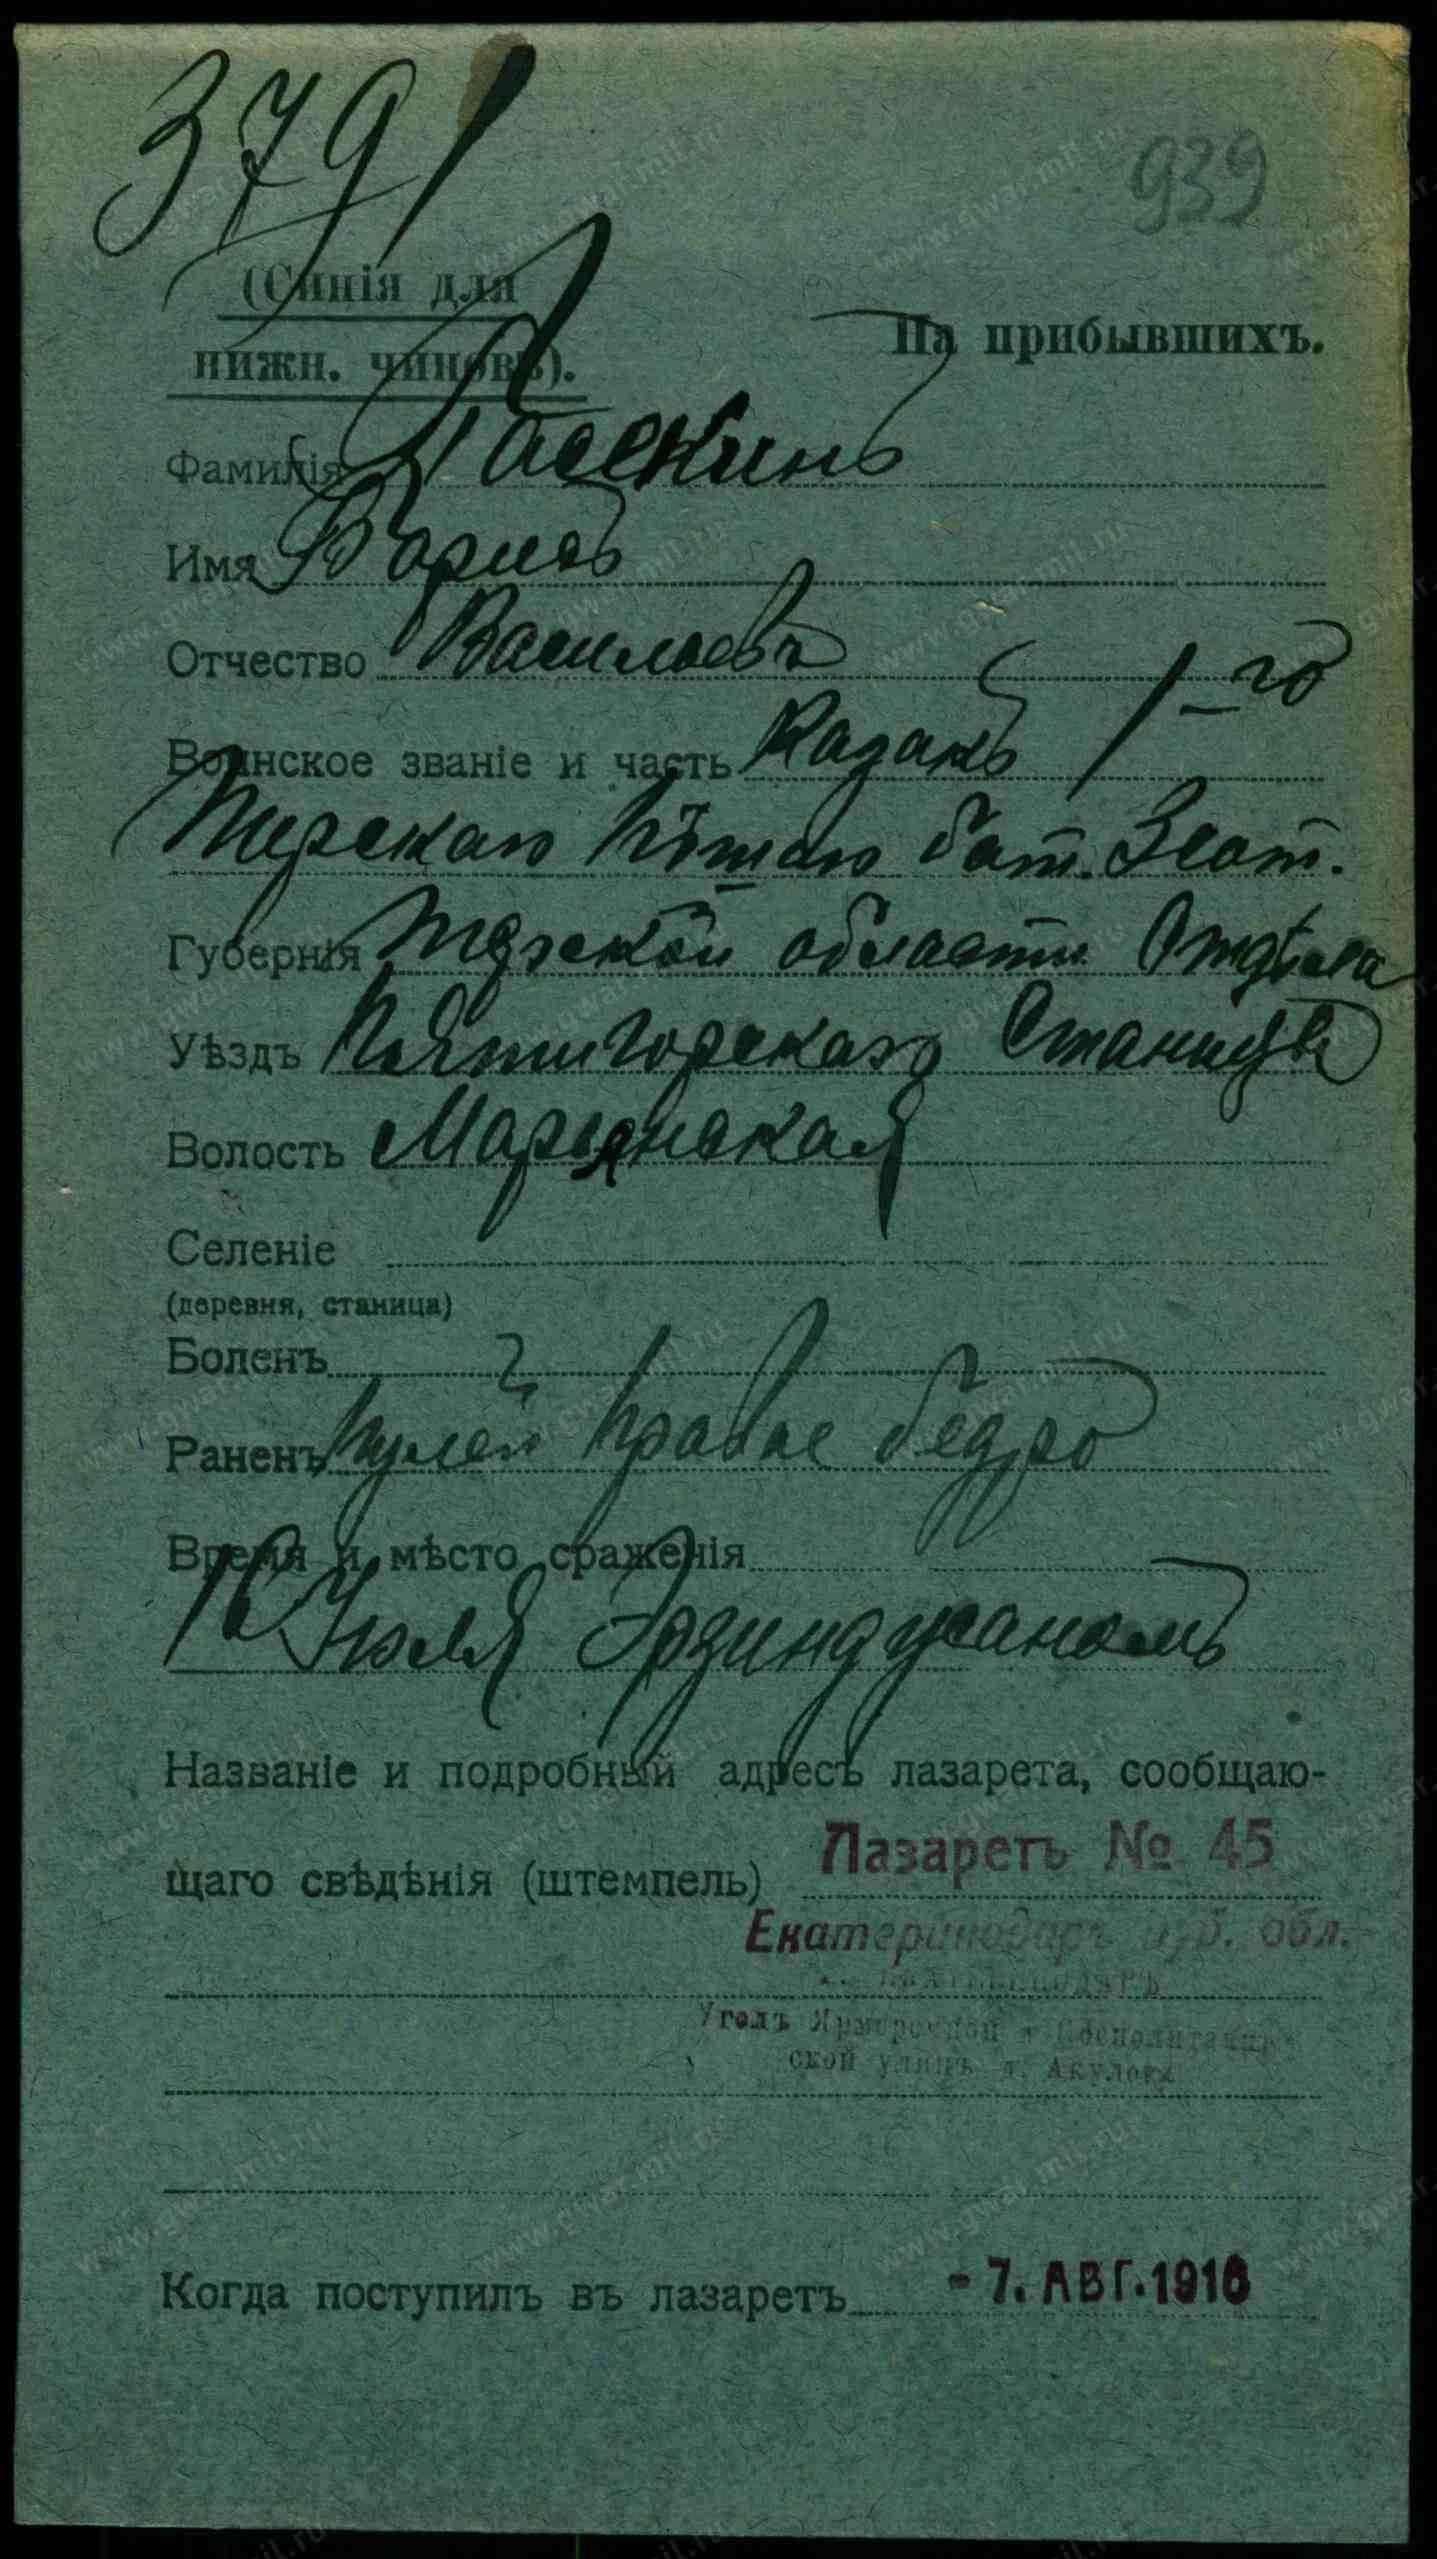 3791
939
(Синія для
нижн. чиновъ).
На прибывшихъ.
Фамилія Пасекинъ
Имя Борисъ
Отчество Васильевъ
Воинское званіе и часть Казакъ 1-го
Терскаго Пѣшаго бат. 3 сот.
Губернія Терской области Отдѣла
Уѣздъ Пятигорскаго Станицы
Волость Марьинская
Селеніе
(деревня, станица)
Боленъ
Раненъ Пулей правое бедро
Время и мѣсто сраженія
16 Июля Эрзинджаномъ
Названіе и подробный адресъ лазарета, сообщаю-
щаго свѣдѣнія (штемпель) Лазаретъ № 45
Екатеринодаръ Куб. обл.
Екатеринодаръ
Уголъ Ярмарочной и
ской улицъ д. Акулова
Когда поступилъ въ лазаретъ - 7. АВГ. 1916